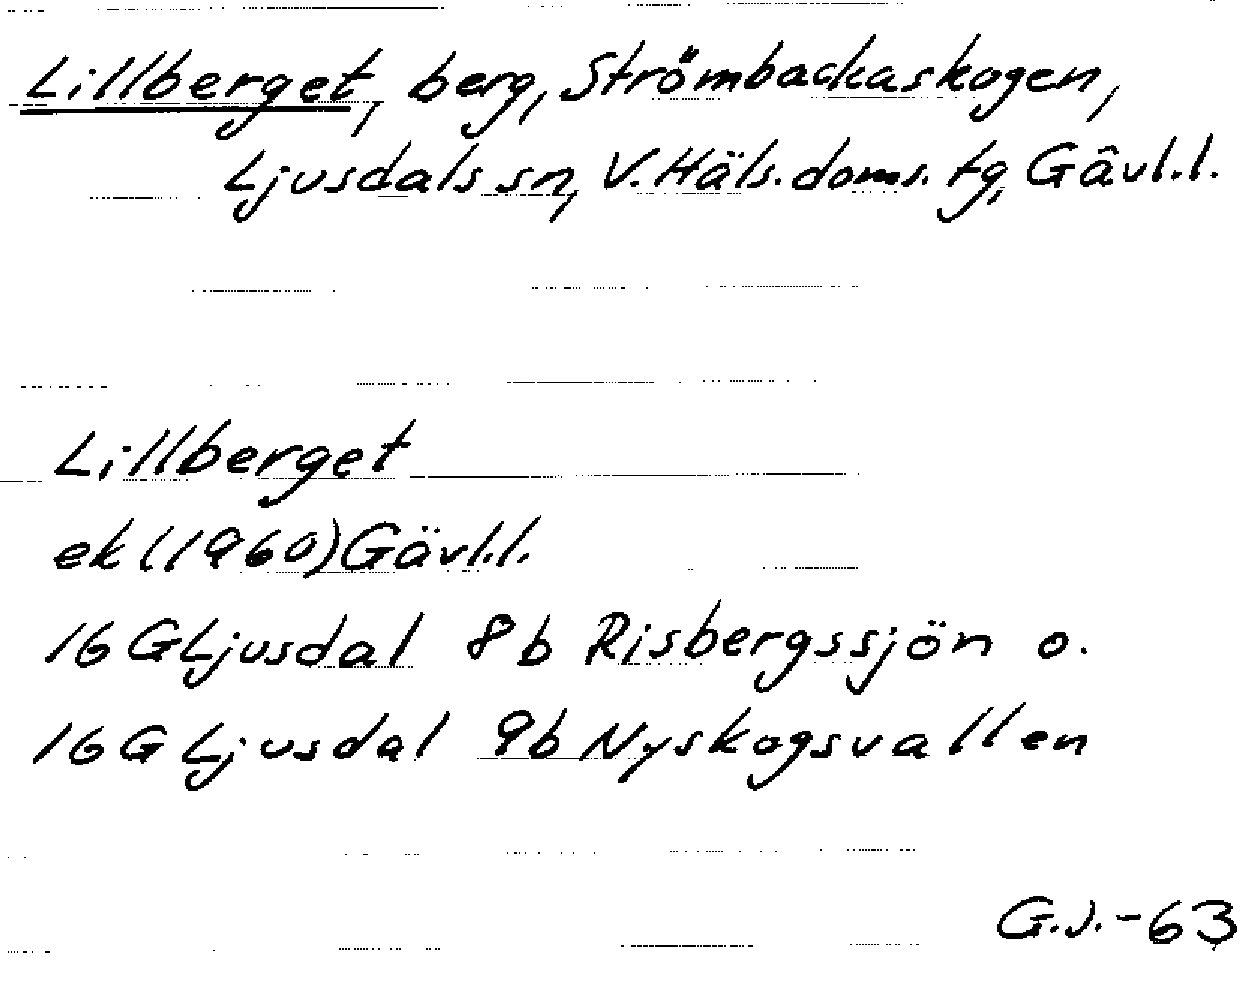 Lillberget, berg, Strömbackaskogen,
Ljusdals sn, V. Häls. doms. tg, Gävl.l.
Lillberget
ek (1960) Gävl.l.
16 G Ljusdal 8b Risbergssjön o.
16 G Ljusdal 9b Nyskogsvallen
G.J.-63